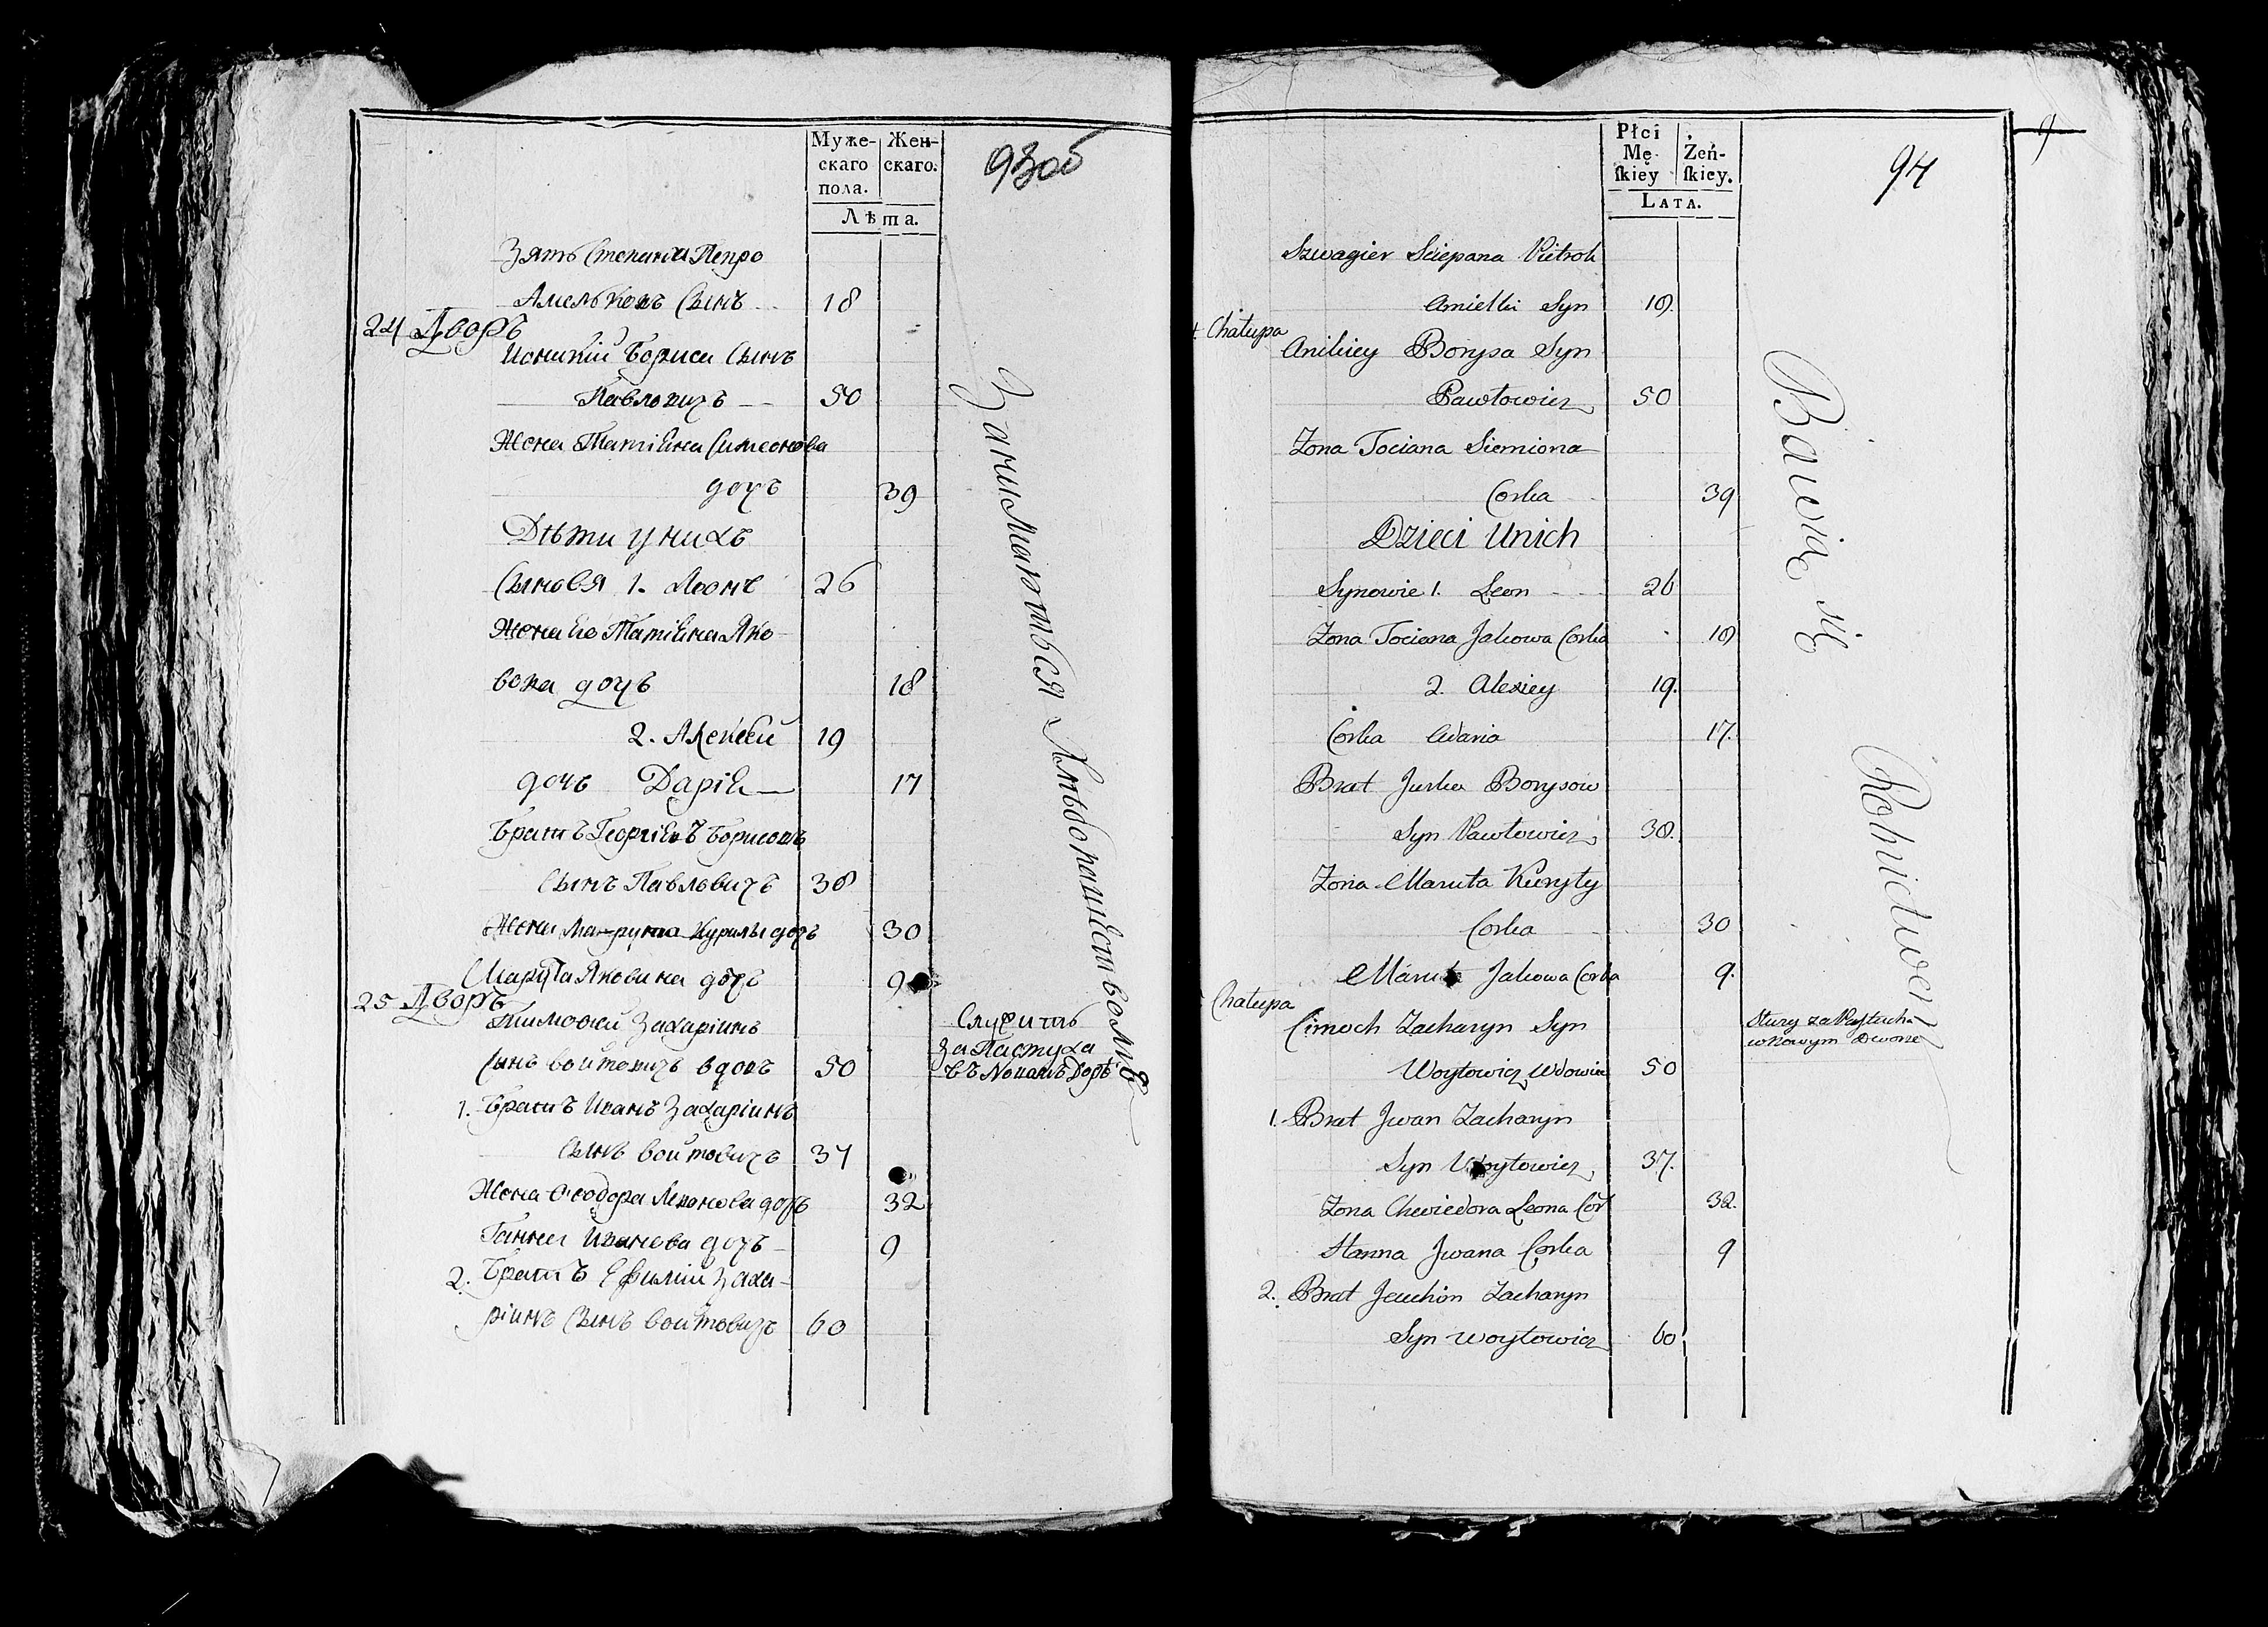 Муже-
скаго
пола.
Жен-
скаго.
Лѣта.
93об
Зять Степана Петро
Амельковъ Сынъ 18
24 Дворъ
Ионикій Бориса Сынъ
Павловичъ 50
Жена Татіана Симеонова
дочь 39
Дѣти у нихъ
Сыновя 1. Леонъ 26
Жена Его Татіана Яко
вова дочь 18
2. Алексѣй 19
дочь Дарія 17
Братъ Георгіевъ Борисовъ
Сынъ Павловичъ 38
Жена Марута Курилы дочь 30
Марута Яковова дочь 9
25 Дворъ
Тимофей Захаріинъ
Сынъ Войтовичъ вдовъ 50
1. Братъ Иванъ Захаріинъ
Сынъ Войтовичъ 37
Жена Феодора Леонова дочь 32
Ганна Иванова дочь 9
2. Братъ Ефимій Заха-
ріинъ Сынъ Войтовичъ 60
Занимаються Хлѣбопашествомъ
Служитъ
за Пастуха
въ Новомъ Дворѣ
Płci
Mę-
skiey
Żeń-
skiey.
Lata.
94
9
Szwagier Sciepana Pietroh
Amielki Syn 18.
Chałupa
Anikiey Borysa Syn
Pawłowicz 50
Zona Tociana Siemiona
Corka 39
Dzieci Unich
Synowie 1. Leon 26
Zona Tociana Jakowa Corka 18
2. Alexiey 19.
Corka Adaria 17.
Brat Jurka Borysow
Syn Pawłowicz 38.
Zona Maruta Kuryły
Corka 30
Maruta Jakowa Corka 9.
Chałupa
Cimoch Zacharyn Syn
Woytowicz Wdowiec 50
1. Brat Jwan Zacharyn
Syn Woytowicz 37.
Zona Chwiedora Leona Cor 32.
Hanna Jwana Corka 9
2. Brat Jeuchim Zacharyn
Syn Woytowicz 60
Bawią się Rolnictwem
Służy za Pastucha
w Nowym Dworze